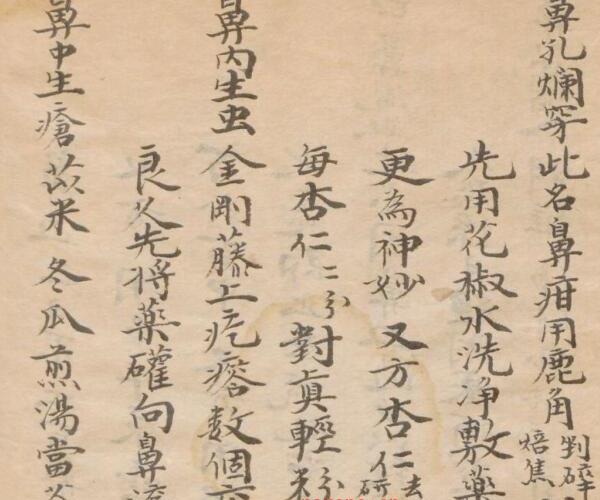 鼻孔爛穿此名鼻疳用鹿角剉碎焙焦
先用花椒水洗净敷藥
更為神妙又方杏仁去研
每杏仁二分對真輕粉
鼻內生虫金剛藤上疙瘩数個
良久先將藥罐向鼻
鼻中生瘡苡米冬瓜煎湯當